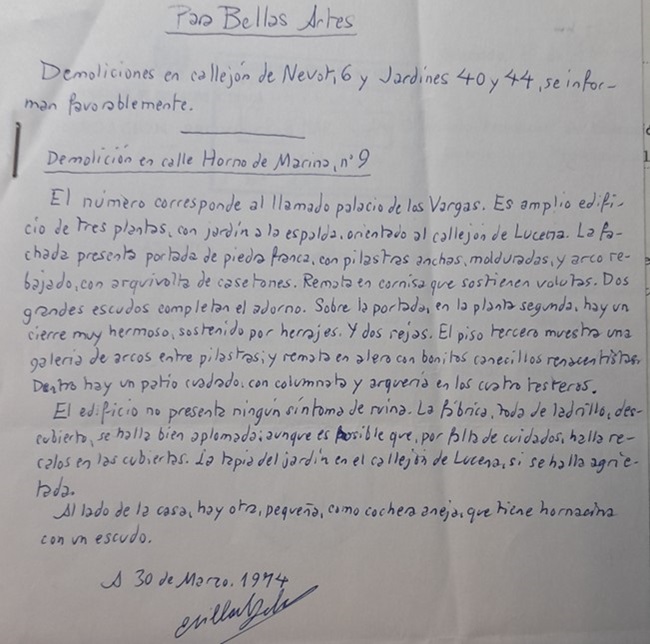 Para Bellas Artes
Demoliciones en callejón de Nevot, 6 y Jardines 40 y 44, se infor-
man favorablemente.
Demolición en calle Horno de Marina, nº 9
El número corresponde al llamado palacio de los Vargas. Es amplio edifi-
cio de tres plantas, con jardín a la espalda, orientado al callejón de Lucena. La fa-
chada presenta portada de piedra franca, con pilastras anchas, molduradas, y arco re-
bajado, con arquivolta de casetones. Remata en cornisa que sostienen volutas. Dos
grandes escudos completan el adorno. Sobre la portada, en la planta segunda, hay un
cierre muy hermoso, sostenido por herrajes. Y dos rejas. El piso tercero muestra una
galería de arcos entre pilastras; y remata en alero con bonitos canecillos renacentistas.
Dentro hay un patio cuadrado, con columnata y arquería en los cuatro testeros.
El edificio no presenta ningún síntoma de ruina. La fábrica, toda de ladrillo, des-
cubierto, se halla bien aplomada; aunque es posible que, por falta de cuidados, halla re-
calos en las cubiertas. La tapia del jardín en el callejón de Lucena, si se halla agrie-
tada.
Al lado de la casa, hay otra, pequeña, como cochera aneja, que tiene hornacina
con un escudo.
A 30 de Marzo. 1974